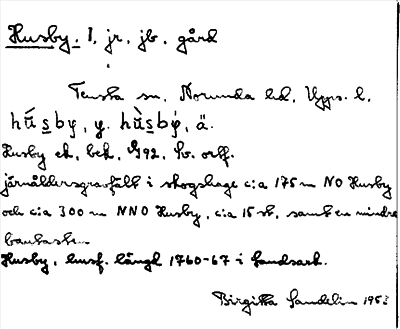 Husby, 1, jr, jb, gård
Tensta sn, Norunda hd, Upps. l.
húsby, y. hùsbý, ä.
Husby ek, bek, G92, Sv. ortf.
järnåldersgravfält i skogshage c:a 175 m NO Husby
och c:a 300 m NNO Husby, c:a 15 st, samt en mindre
bautasten
Husby, husf. längd 1760-67 i landsark.
Birgitta Sandelin 195